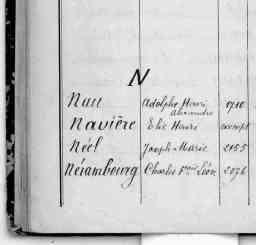 N
Nau Adolphe Henri 1910
Alexandre
Navière Elie Henri exempt
Néel Joseph Marie 2155
Nérambourg Charles Léon 2076